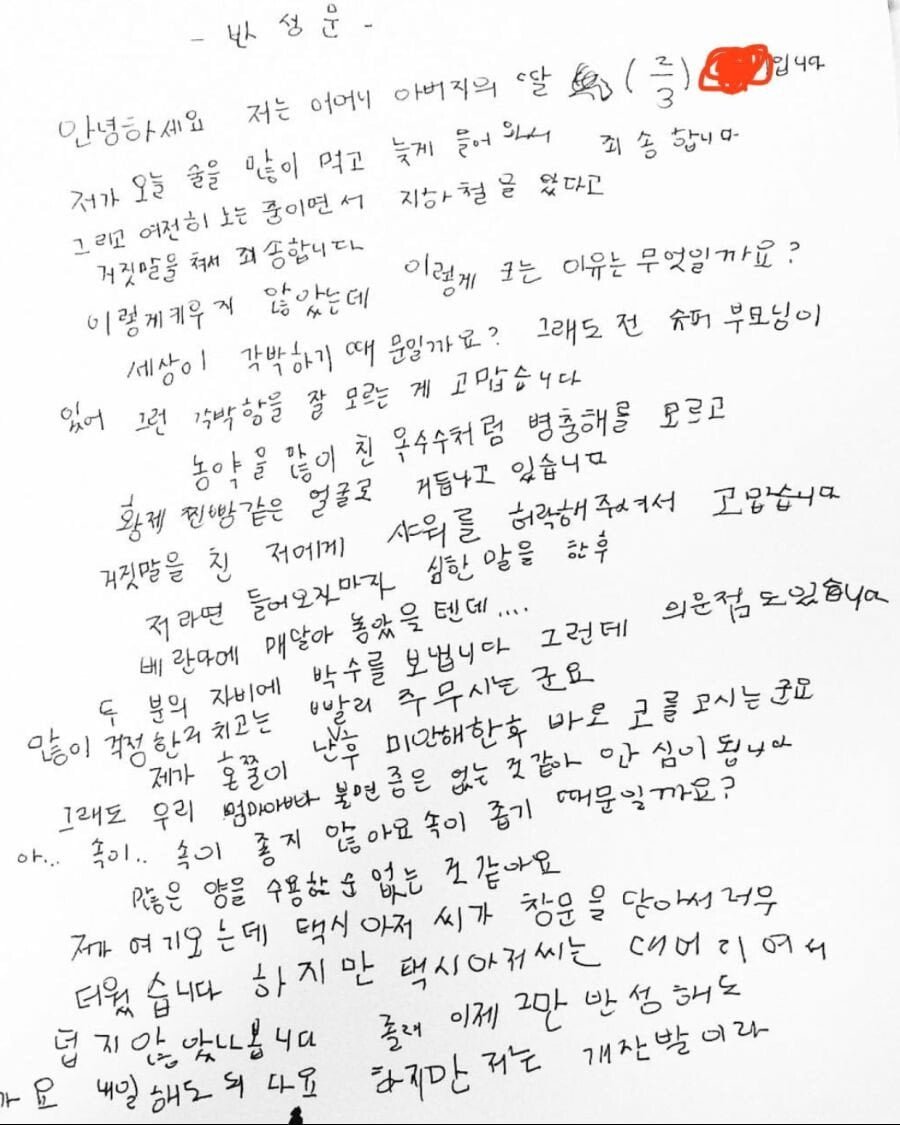 - 반성문 -
안녕하세요 저는 어머니 아버지의 딸 (2/3) 입니다
저가 오늘 술을 많이 먹고 늦게 들어와서 죄송합니다
그리고 여전히 노는 중이면서 지하철을 탔다고
거짓말을 쳐서 죄송합니다
이렇게 키우지 않았는데 이렇게 크는 이유는 무엇일까요?
세상이 각박하기 때문일까요? 그래도 전 슈퍼 부모님이
있어 그런 각박함을 잘 모르는 게 고맙습니다
농약을 많이 친 옥수수처럼 병충해를 모르고
황제 찐빵같은 얼굴로 거듭나고 있습니다
거짓말을 친 저에게 샤워를 허락해주셔서 고맙습니다
저라면 들어오자마자 심한 말을 한 후
베란다에 매달아 놓았을 텐데....
두 분의 자비에 박수를 보냅니다 그런데 의문점도 있습니다
많이 걱정한거 치고는 빨리 주무시는군요
제가 혼쭐이 난 후 미안해한후 바로 코를 고시는군요
그래도 우리 엄마아빠가 불면증은 없는 것 같아 안심이 됩니다
아... 속이.. 속이 좋지 않아요 속이 좁기 때문일까요?
많은 양을 수용할 순 없는 것 같아요
저가 여기 오는데 택시 아저씨가 창문을 닫아서 너무
더웠습니다 하지만 택시아저씨는 대머리여서
덥지 않았나봅니다 졸려 이제 그만 반성해도
까요 내일 해도 되 다요 하지만 저는 개잔발이라